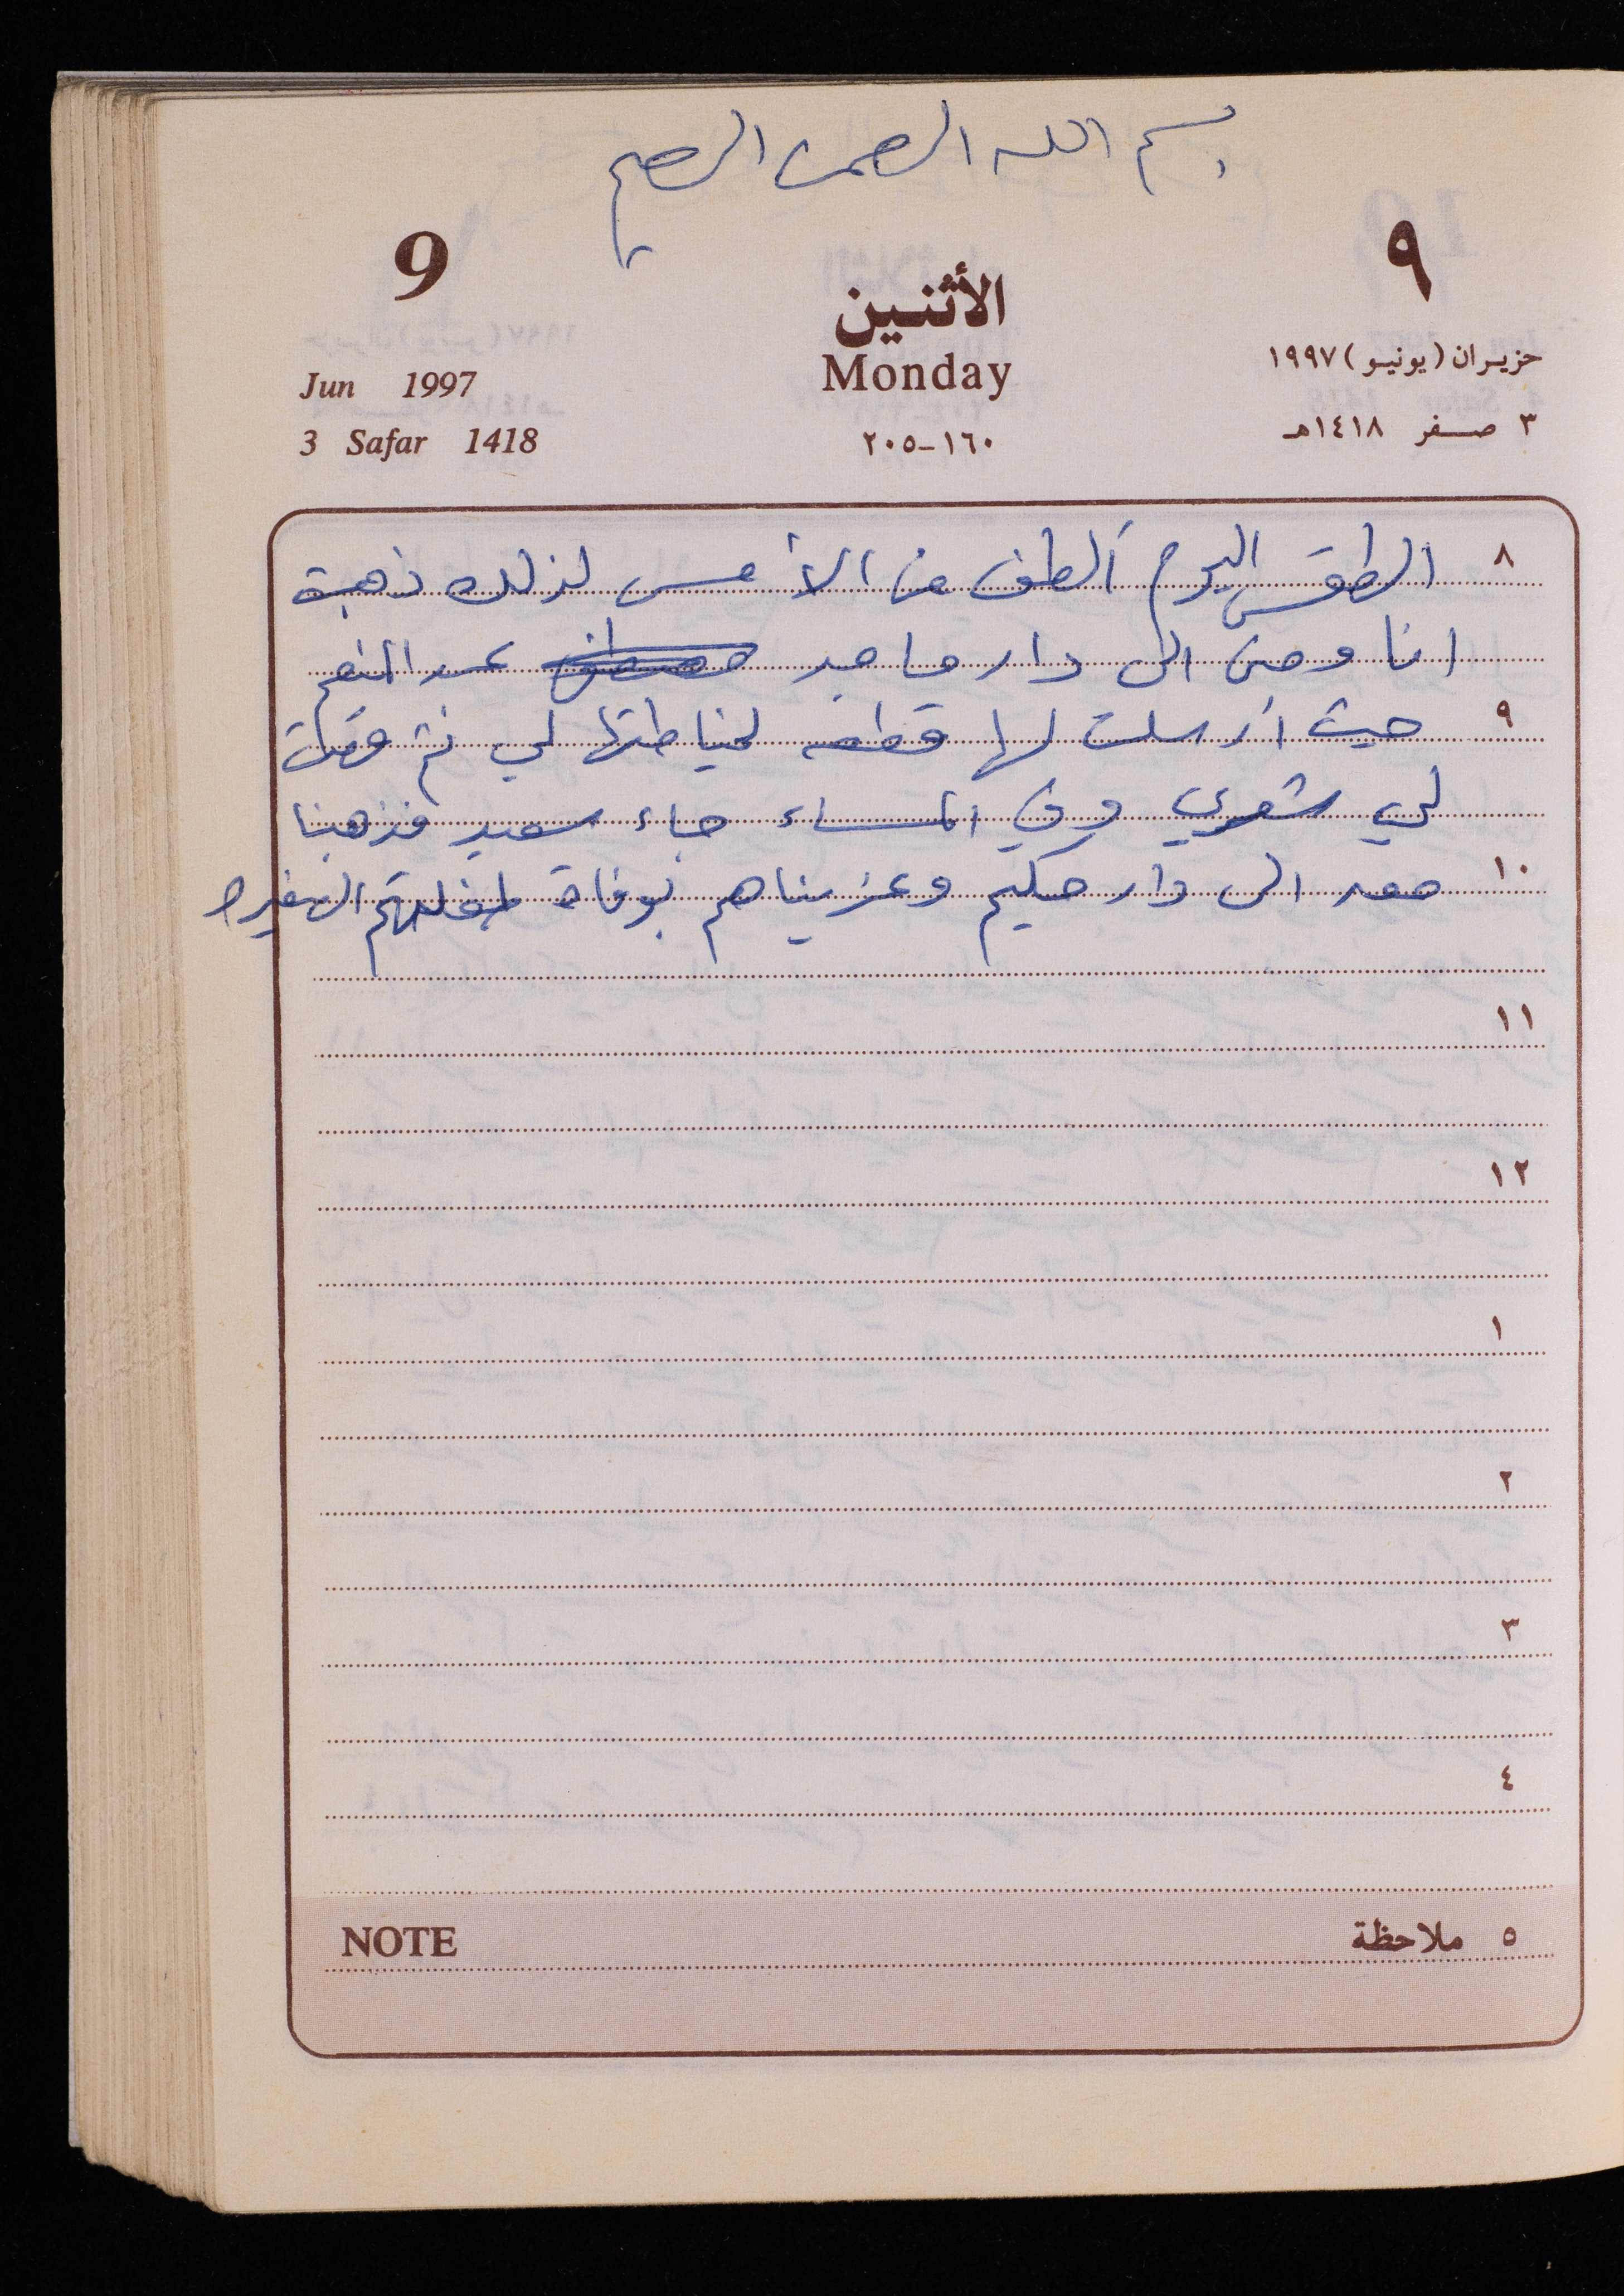 بسم الله الرحمن الرحيم
9 ٩
الأثنين
Monday
Jun 1997 حزيران (يونيو) ١٩٩٧
3 Safar 1418 ١٦٠-٢٠٥ ٣ صفر ١٤١٨هـ
٨ الطقس اليوم ألطف من الأمس لذلك ذهبت
انا ومنى الى دار ماجد عبد المنعم
٩ حيث أرسلت لها قطعه لخياطتها لي ثم قصت
لي شعري وفي المساء جاء سعيد فذهبنا
١٠ معه الى دار حكيم وعزيناهم بوفاة طفلتهم الصغيرة
١١
١٢
١
٢
٣
٤
NOTE ٥ ملاحظة